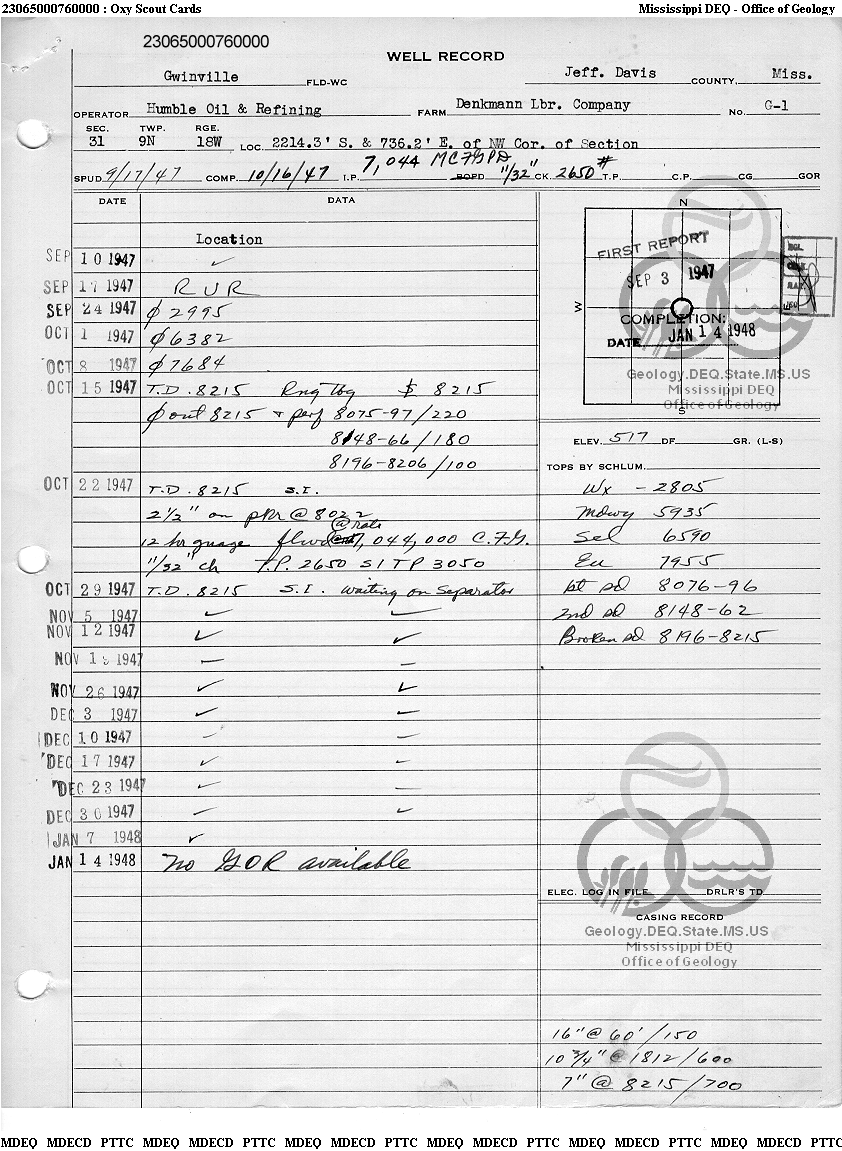 23065000760000 : Oxy Scout Cards Mississippi DEQ - Office of Geology
23065000760000
WELL RECORD
Gwinville FLD-WC Jeff. Davis COUNTY, Miss.
OPERATOR Humble Oil & Refining FARM Denkmann Lbr. Company No. G-1
SEC. TWP. RGE.
31 9N 18W LOC. 2214.3' S. & 736.2' E. of NW Cor. of Section
SPUD 9/17/47 COMP. 10/16/47 I.P. 7,044 MCFGPD BOPD 11/32" CK. 2650# T.P. C.P. CG GOR
DATE DATA
N
W
S
FIRST REPORT
SEP 3 1947
COMPLETION:
DATE JAN 14 1948
Geology.DEQ.State.MS.US
Mississippi DEQ
Office of Geology
Location
SEP 10 1947 ✓
SEP 17 1947 RUR
SEP 24 1947 ϕ 2995
OCT 1 1947 ϕ 6382
OCT 8 1947 ϕ 7684
OCT 15 1947 T.D. 8215 Rng Tbg $ 8215
ϕ out 8215 + perf 8075-97/220
8148-66/180
8196-8206/100
OCT 22 1947 T.D. 8215 S.I.
2 1/2" on pkr @ 8022
@ rate
12 hr guage flwd 7,044,000 C.F.G.
11/32" ch T.P. 2650 SITP 3050
OCT 29 1947 T.D. 8215 S.I. waiting on Separator
NOV 5 1947 ✓ ✓
NOV 12 1947 ✓ ✓
NOV 1 1947 — —
NOV 26 1947 ✓ ✓
DEC 3 1947 ✓ ✓
DEC 10 1947 ✓ ✓
DEC 17 1947 ✓ ✓
DEC 23 1947 ✓ —
DEC 30 1947 ✓ ✓
JAN 7 1948 ✓
JAN 14 1948 no GOR available
ELEV. 517 DF GR. (L-S)
TOPS BY SCHLUM.
Wx - 2805
Mdwy 5935
Sel 6590
Eu 7955
1st sd 8076-96
2nd sd 8148-62
Broken sd 8196-8215
ELEC. LOG IN FILE DRLR'S TD
CASING RECORD
Geology.DEQ.State.MS.US
Mississippi DEQ
Office of Geology
16" @ 60'/150
10 3/4" @ 1812/600
7" @ 8215/700
MDEQ MDECD PTTC MDEQ MDECD PTTC MDEQ MDECD PTTC MDEQ MDECD PTTC MDEQ MDECD PTTC MDEQ MDECD PTTC